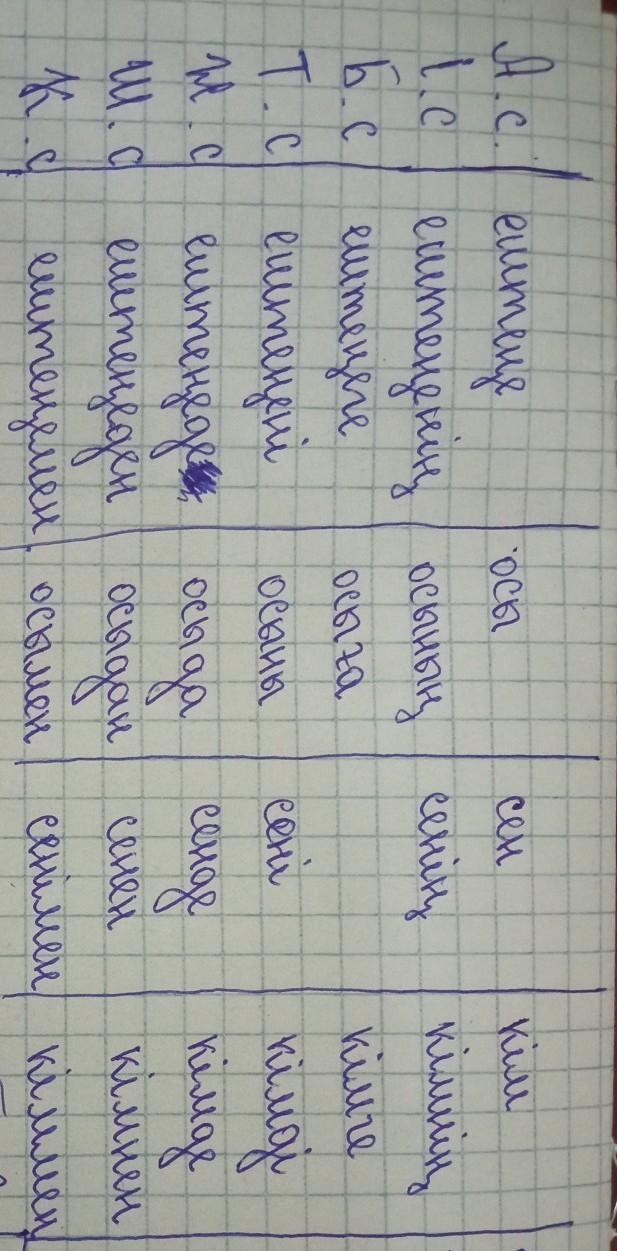 А.с. ештеңе осы сен кім
І.с ештеңенің осының сенің кімнің
Б.с ештеңеге осыға кімге
Т.с ештеңені осыны сені кімді
Ж.с ештеңеде осыда сенде кімде
Ш.с ештеңеден осыдан сенен кімнен
К.с ештеңемен осымен сенімен кіммен